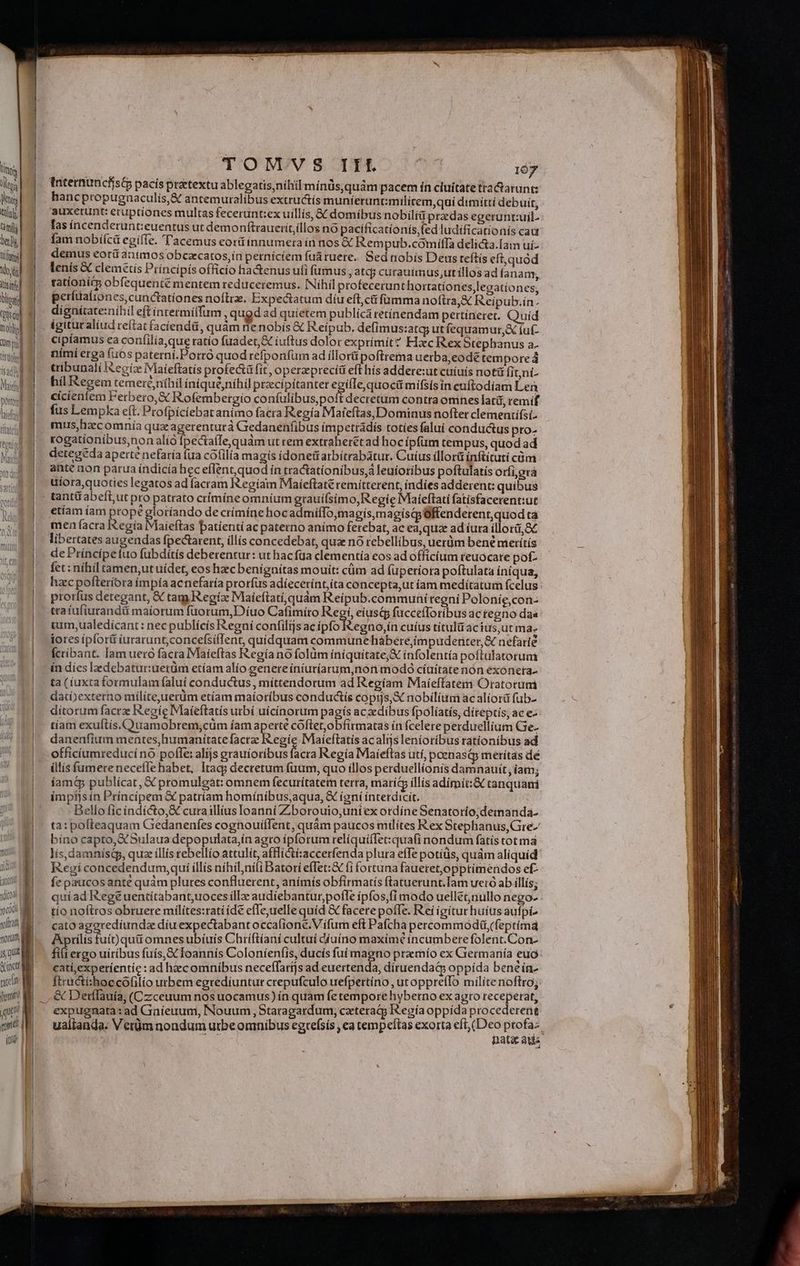 TOMVS III. 107
internuncijsq́; pacis prætextu ablegatis, nihil minùs, quàm pacem in ciuitate tractarunt:
hanc propugnaculis, & antemuralibus extructis munierunt: militem, qui dimitti debuit,
auxerunt: eruptiones multas fecerunt: ex uillis, & domibus nobiliũ prædas egerunt: uil-
las incenderunt: euentus ut demonstrauerit, illos nõ pacificationis, sed ludificationis cau
sam nobiscũ egisse. Tacemus eorũ innumera in nos & Rempub. cõmissa delicta. Iam ui-
demus eorũ animos obcæcatos, in perniciem suã ruere. Sed nobis Deus testis est, quòd
lenis & clemẽtis Principis officio hactenus usi sumus, atq; curauimus, ut illos ad sanam,
rationiq́; obsequentẽ mentem reduceremus. Nihil profecerunt hortationes, legationes,
persuasiones, cunctationes nostræ. Expectatum diu est, cũ summa nostra, & Reipub. in-
dignitate: nihil est intermissum, quod ad quietem publicã retinendam pertineret. Quid
igitur aliud restat faciendũ, quàm ne nobis & Reipub. desimus: atq; ut sequamur, & sus-
cipiamus ea consilia, que ratio suadet, & iustus dolor exprimit? Hæc Rex Stephanus a-
nimi erga suos paterni. Porrò quod responsum ad illorũ postrema uerba, eodẽ tempore à
tribunali Regiæ Maiestatis profectũ sit, operæpreciũ est his addere: ut cuiuis notũ sit, ni-
hil Regem temerè, nihil iniquè, nihil præcipitanter egisse, quocũ missis in custodiam Len
ciciensem Ferbero, & Rosembergio consulibus, post decretum contra omnes latũ, remis
sus Lempka est. Prospiciebat animo sacra Regia Maiestas, Dominus noster clementissi-
mus, hæc omnia quæ agerentur à Gedanensibus impetrãdis toties salui conductus pro-
rogationibus, non aliò spectasse, quàm ut rem extraherẽt ad hoc ipsum tempus, quod ad
deregẽda apertè nefaria sua cõsilia magis idoneũ arbitrabãtur. Cuius illorũ instituti cùm
antè non parua indicia hęc essent, quod in tractationibus, à leuioribus postulatis orsi, gra
uiora, quoties legatos ad sacram Regiam Maiestatẽ remitterent, indies adderent: quibus
tantũ abest, ut pro patrato crimine omnium grauissimo, Regię Maiestati satisfacerent: ut
etiam iam propè gloriando de crimine hoc admisso, magis, magisq́; offenderent, quod ta
men sacra Regia Maiestas patienti ac paterno animo ferebat, ac ea, quæ ad iura illorũ, &
libertates augendas spectarent, illis concedebat, quæ nõ rebellibus, uerùm benè meritis
de Principe suo subditis deberentur: ut hac sua clementia eos ad officium reuocare pos-
set: nihil tamen, ut uidet, eos hæc benignitas mouit: cùm ad superiora postulata iniqua,
hæc posteriora impia ac nefaria prorsus adiecerint, ita concepta, ut iam meditatum scelus
prorsus detegant, & tam Regiæ Maiestati, quàm Reipub. communi regni Polonię, con-
tra iusiurandũ maiorum suorum, Diuo Casimiro Regi, eiusq́; successoribus ac regno da-
tum, ualedicant: nec publicis Regni consilijs ac ipso Regno, in cuius titulũ ac ius, ut ma-
iores ipsorũ iurarunt, concessissent, quidquam commune habere, impudenter, & nefariè
scribant. Iam uerò sacra Maiestas Regia nõ solùm iniquitate, & insolentia postulatorum
in dies lædebatur: uerùm etiam alio genere iniuriarum, non modò ciuitate non exonera-
ta (iuxta formulam salui conductus, mittendorum ad Regiam Maiestatem Oratorum
dati) externo milite, uerùm etiam maioribus conductis copijs, & nobilium ac aliorũ sub-
ditorum sacræ Regię Maiestatis urbi uicinorum pagis ac ædibus spoliatis, direptis, ac e-
tiam exustis. Quamobrem, cùm iam apertè cõstet, obfirmatas in scelere perduellium Ge-
danensium mentes, humanitate sacræ Regię Maiestatis ac alijs lenioribus rationibus ad
officium reduci nõ posse: alijs grauioribus sacra Regia Maiestas uti, pœnasq́; meritas de
illis sumere necesse habet. Itaq; decretum suum, quo illos perduellionis damnauit, iam,
iamq́; publicat, & promulgat: omnem securitatem terra, mariq́; illis adimit: & tanquam
impijs in Principem & patriam hominibus, aqua, & igni interdicit.
Bello sic indicto, & cura illius Ioanni Zborouio, uni ex ordine Senatorio, demanda-
ta: posteaquam Gedanenses cognouissent, quàm paucos milites Rex Stephanus, Gre-
bino capto, & Sulaua depopulata, in agro ipsorum reliquisset: quasi nondum satis tot ma
lis, damnisq́;, quæ illis rebellio attulit, afflicti: accersenda plura esse potiùs, quàm aliquid
Regi concedendum, qui illis nihil, nisi Batori esset: & si fortuna faueret, opprimendos es-
se paucos antè quàm plures confluerent, animis obfirmatis statuerunt. Iam uerò ab illis,
qui ad Regẽ uentitabant, uoces illæ audiebantur, posse ipsos, si modo uellẽt, nullo nego-
tio nostros obruere milites: rati idẽ esse, uelle quid & facere posse. Rei igitur huius auspi-
cato aggrediundæ diu expectabant occasionẽ. Visum est Pascha percommodũ, (septima
Aprilis fuit) quũ omnes ubiuis Christiani cultui diuino maximè incumbere solent. Con-
fisi ergo uiribus suis, & Ioannis Coloniensis, ducis sui magno præmio ex Germania euo
cati, experientię: ad hæc omnibus necessarijs ad euertenda, diruendaq́; oppida benè in-
structi: hoc cõsilio urbem egrediuntur crepusculo uespertino, ut oppresso milite nostro,
& Derssauia, (Czceuum nos uocamus) in quam se tempore hyberno ex agro receperat,
expugnata: ad Gnieuum, Nouum, Staragardum, cæteraq́; Regia oppida procederent
uastanda. Verùm nondum urbe omnibus egressis, ea tempestas exorta est, (Deo profa-
natæ ædis